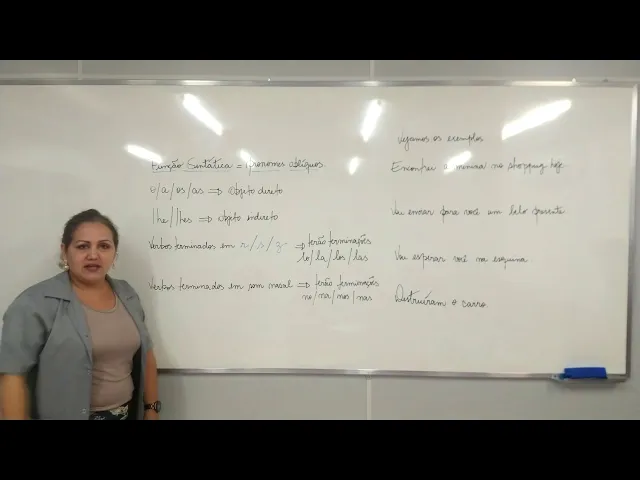 Função Sintática = Pronomes oblíquos
o/a/os/as ⇒ objeto direto
lhe/lhes ⇒ objeto indireto
Verbos terminados em r/s/z ⇒ terão terminações
lo/la/los/las
Verbos terminados em som nasal ⇒ terão terminações
no/na/nos/nas
Vejamos os exemplos
Encontrei a menina no shopping hoje
Vou enviar para você um belo presente
Vou esperar você na esquina
Destruíram o carro